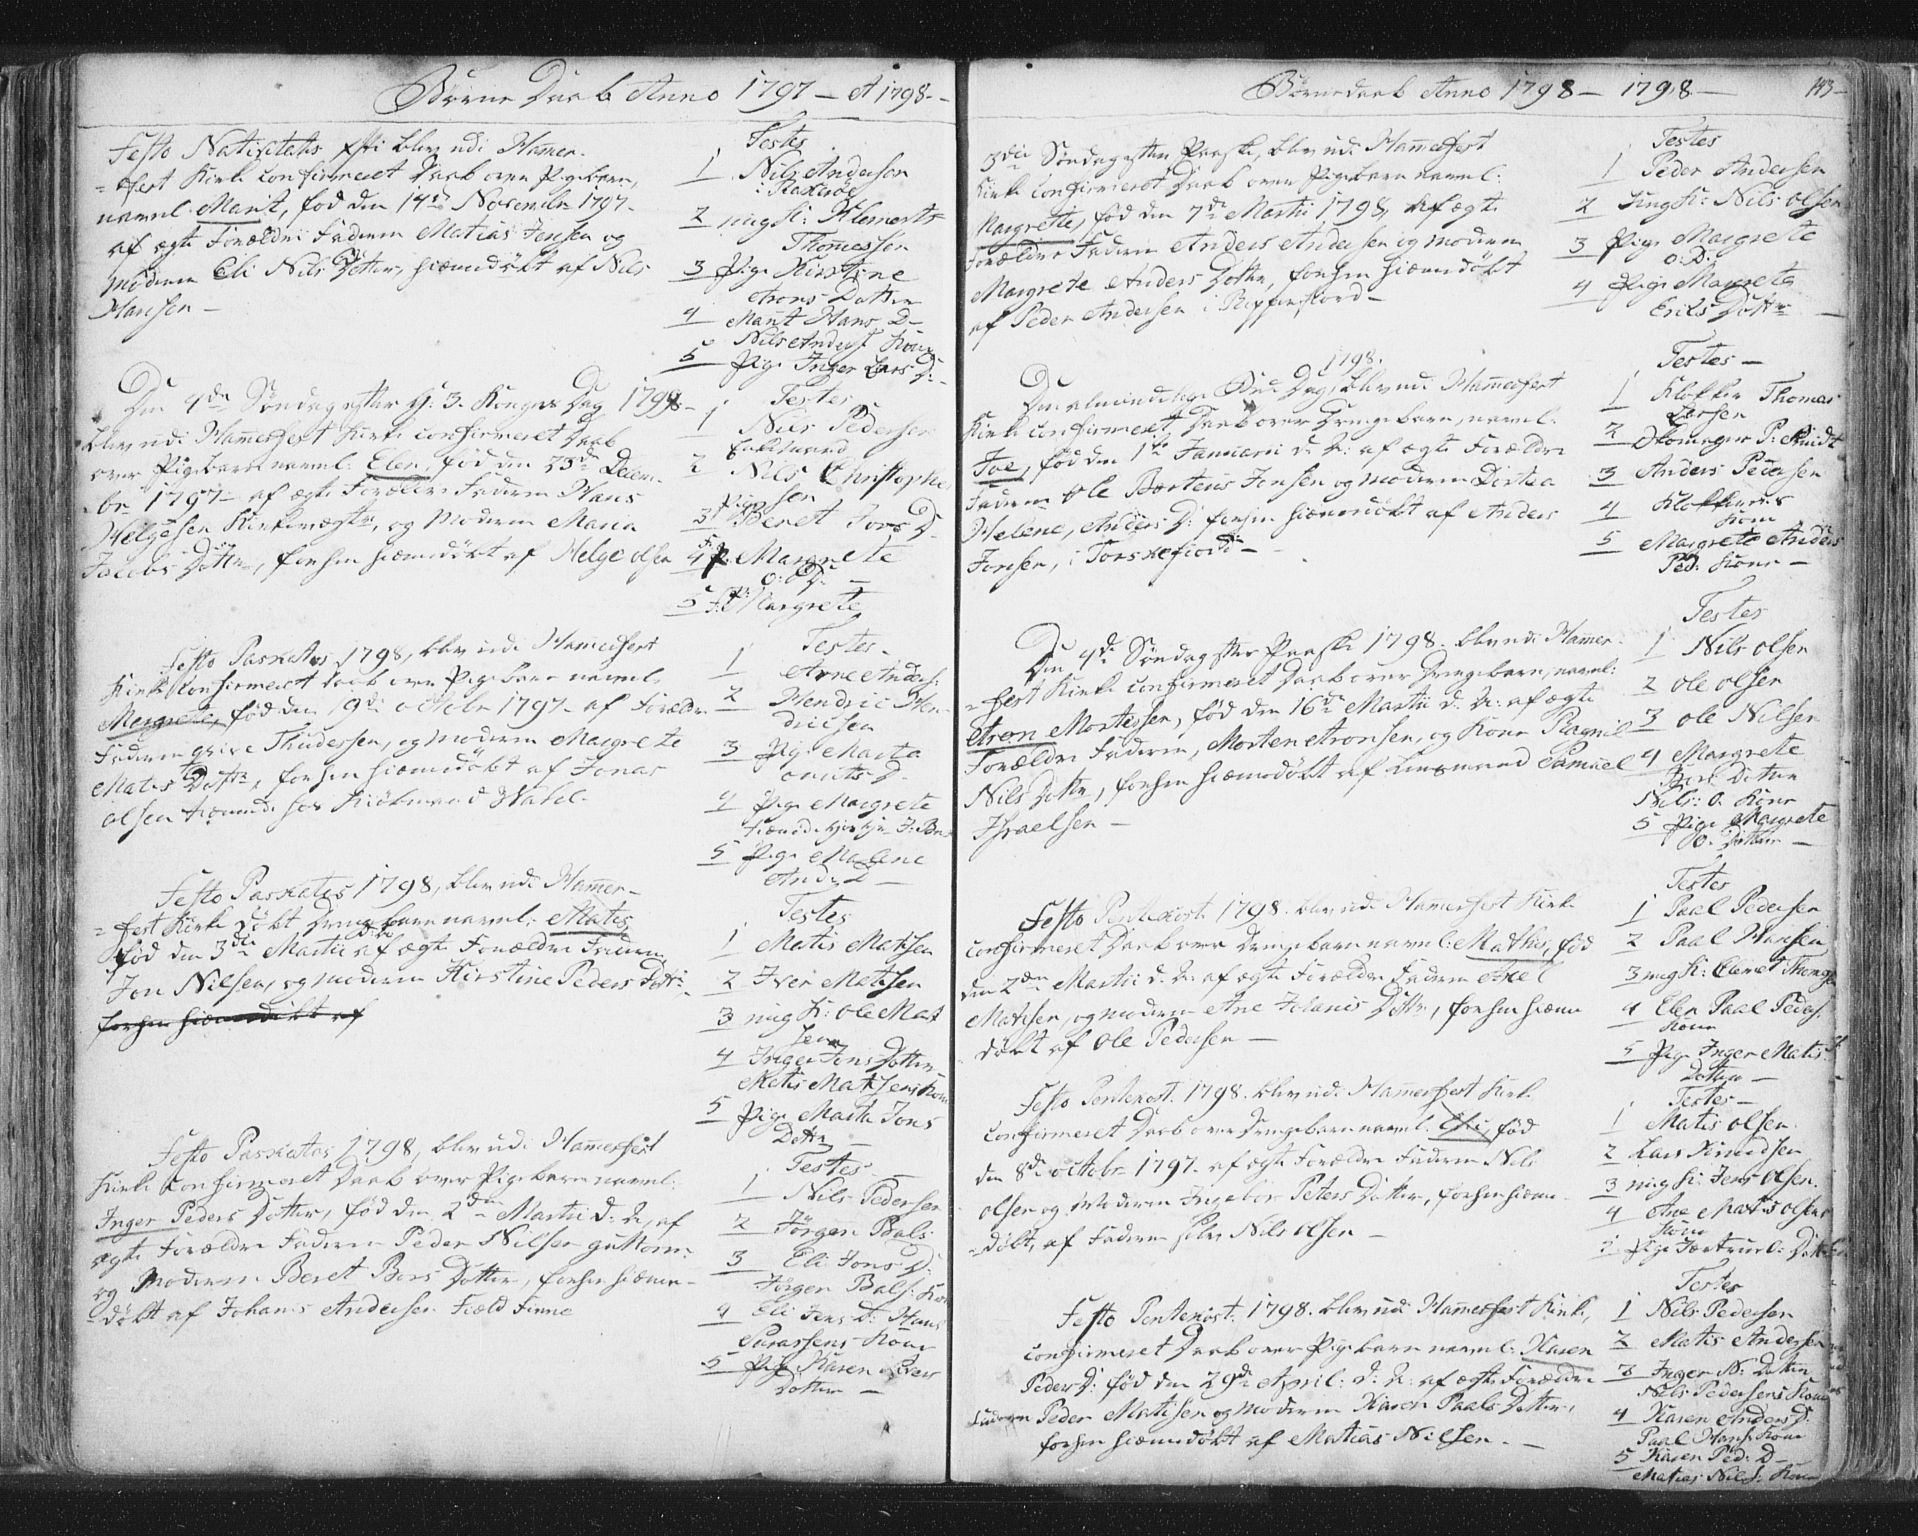 Børne Daab Anno 1797 — et 1798 —
Festo Nativitatis Xsti blev udi Hamer-
-fest Kirke confirmeret Daab over Pigebarn,
navnl. Marit, fød den 14de Novembr 1797-
af ægte Forældre Faderen Matias Jensen og
Moderen Eli Nils Dotter, hiemdöbt af Nils
Hansen —
Testes
1 Nils Andersen
2 ungk: Klemet
Thomessen
3 Pige Kirstine
Arons Dotter
4 Marit Hans D-
Nils Anders: Kone
5 Pige Inger Lars D:
Den 4de Søndag efter H: 3 Konges Dag 1798-
blev udi Hamerfest Kirke confirmeret Daab
over Pigebarn navnl: Elen, fød den 23de Decem-
br 1797- af ægte Forældre Faderen Hans
Helgesen Kirkeværge, og Moderen Maria
Jacobs Dotter, forhen hiemdöbt af Helge olsen
Testes
1 Nils Pedersen
2 Nils Christophe
sen
3 Beret Jors D-
4 P. Margrete
O: D: —
5 Margrete
Festo Paskatos 1798, blev udi Hamerfest
Kirke confirmeret Daab over Pigebarn navnl.
Margrete, fød den 19de octobr 1797- af Forældre
Faderen Thudessen, og Moderen Margrete
Matis Dotter, forhen hiemdöbt af Jonas
olsen hos Kiöbmand
Testes-
1 Arne Anders:
2 Hendric Hen-
dricsen
3 Pige Marta
D-
4 Pige Margrete
5 Pige Malene
And: D —
Festo Paskatos 1798, blev udi Hamer-
-fest Kirke döbt Drengebarn navnl: Mates,
fød den 3de Martii af ægte Forældre Faderen
Jon Nilsen, og moderen Kirstine Peders Dotter,
forhen hiemdöbt af
Testes
1 Matis Matisen
2 Iver Matisen
3 ung K: ole Mat
sen
4 Inger Jens Dotter
Matis Matisens Kone
5 Pige Marta Jons
Dotter —
Festo Paskatos 1798, blev udi Hamerfest
Kirke confirmeret Daab over Pigebarn navnl:
Inger Peders Dotter, fød den 2de Martii d: A:, af
ægte Forældre Faderen Peder Nilsen guttorm-
og Moderen Beret Bors Dotter, forhen hiem-
-döbt af Johanis Andersen Field Finne
Testes —
1 Nils Pedersen
2 Jörgen Bals:
3 Eli Jons D:
Jörgen Bals: Kone
4 Eli Jens D: Hans
Kone
5 Pige Karen Peders
Dotter —
Børnedaab Anno 1798 — 1798 —
143-
3die Søndag efter Paaske, blev udi Hamerfest
Kirke confirmeret Daab over Pigebarn navnl:
Margrete, fød den 7de Martii 1798, af ægte
Forældre Faderen Anders Andersen og moderen
Margrete Anders Dotter, forhen hiemdöbt
af Peder Andersen i Repperfiord —
Testes
1 Peder Andersen
2 Ungk: Nils olsen
3 Pige Margrete
O: D:
4 Pige Margrete
Erils Dotter —
1798.
Den almindelige Bede Dag, blev udi Hamerfest
Kirke confirmeret Daab over Drengebarn, navnl:
Joe, fød den 1te Januarii d: A: af ægte Forældre
Faderen Ole Bortens Jonsen og moderen Dortea
Helene, Anders D: forhen hiemdöbt af Anders
Jonsen, i Torskefiord —
Testes —
1 Klokker Thomas
Larsen
2 Skomager P: Smidt
3 Anders Pedersen
4 Klokkerens
Kone
5 Margrete Anders
Ped: Kone —
Den 4de Søndag efter Paaske 1798. blev udi Hamer-
-fest Kirke confirmeret Daab over Drengebarn, navnl:
Aron Mortensen, fød den 16de Martii d: A: af ægte
Forældre Faderen, Morten Aronsen, og Kone Ragnil
Nils Dotter, forhen hiemdöbt af Lensmand Samuel
Israelsen —
Testes
1 Nils olsen
2 ole olsen
3 ole Nilsen
4 Margrete
Dotter
Nils: O. Kone
5 Pige Margrete
O. Dotter —
Festo Pentekost: 1798. blev udi Hamerfest Kirke
confirmeret Daab over Drengebarn navnl: Mathis, fød
den 2den Martii d: A: af ægte Forældre Faderen Axel
Matisen, og moderen Ane Johanis Dotter, forhen hiem-
döbt af Ole Pedersen —
Testes
1 Paal Pedersen
2 Paal Hansen
3 ung K: Clemet Thomes:
4 Elen Paal Peders:
Kone
5 Pige Inger Matis
Dotter —
Festo Pentekost. 1798. blev udi Hamerfest Kirke
confirmeret Daab over Drengebarn navnl. fød
den 8de octobr 1797- af ægte Forældre Faderen Nils
olsen og Moderen Ingebor Peters Dotter, forhen hiem-
-döbt, af Faderen selv Nils olsen —
Testes —
1 Matis olsen.
2 Lars Knudsen
3 ung K: Jens olsen.
4 Ane Matis olsens
Kone
5 Pige
Festo Pentekost. 1798. blev udi Hamerfest Kirke,
confirmeret Daab over Pigebarn navnl: Karen
Peders D: fød den 29de April: d: A: af ægte Forældre
Faderen Peder Matisen og moderen Karen Paals Dotter,
forhen hiemdöbt af Matias Nilsen. —
Testes
1 Nils Pedersen
2 Matis Andersen
3 Inger N: Dotter
Nils Pedersens Kone
4 Karen Anders D:
Paal Hans: Kone
5 Karen Ped: D-
Matias Nils: Kone